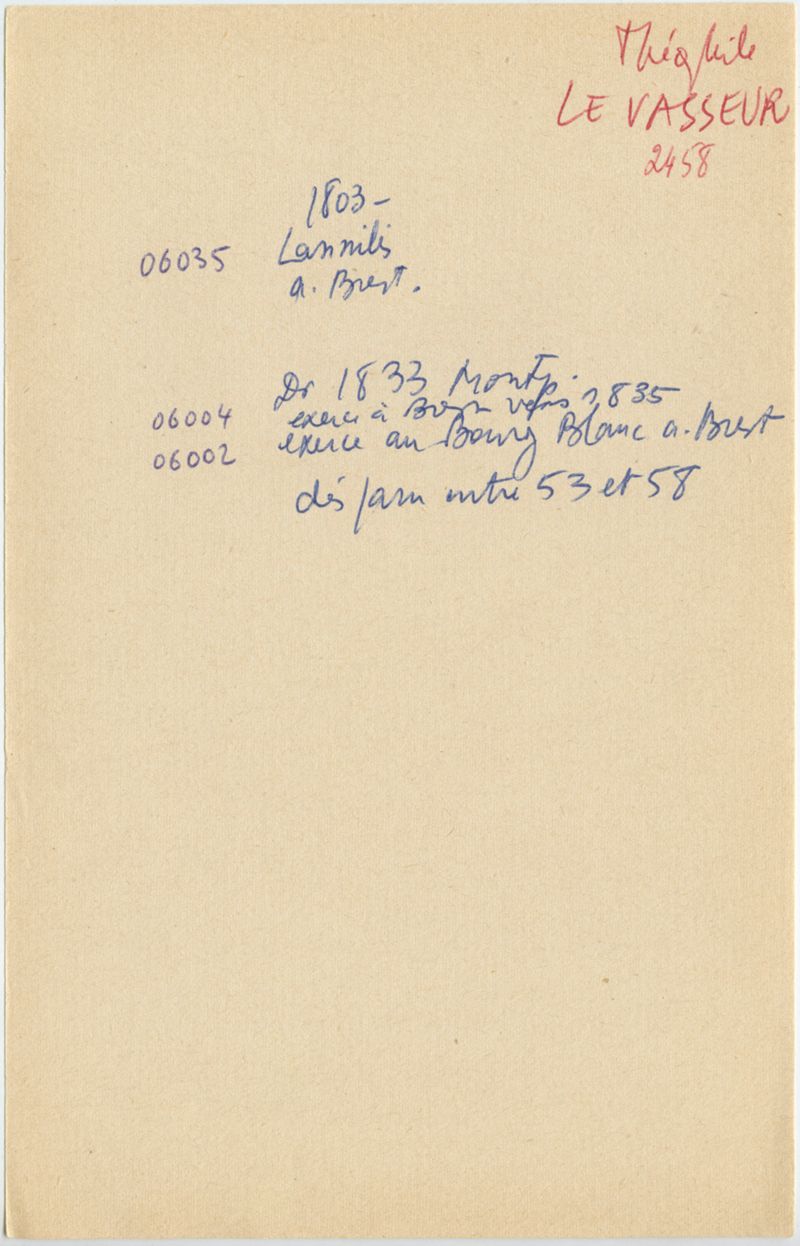 Théophile
LE VASSEUR
2458
1803 -
06035 Lannilis
a. Brest.
Dr 1833 Montp.
06004 exerce à Brest vers 1835
06002 exerce au Bourg Blanc a. Brest
disparu entre 53 et 58